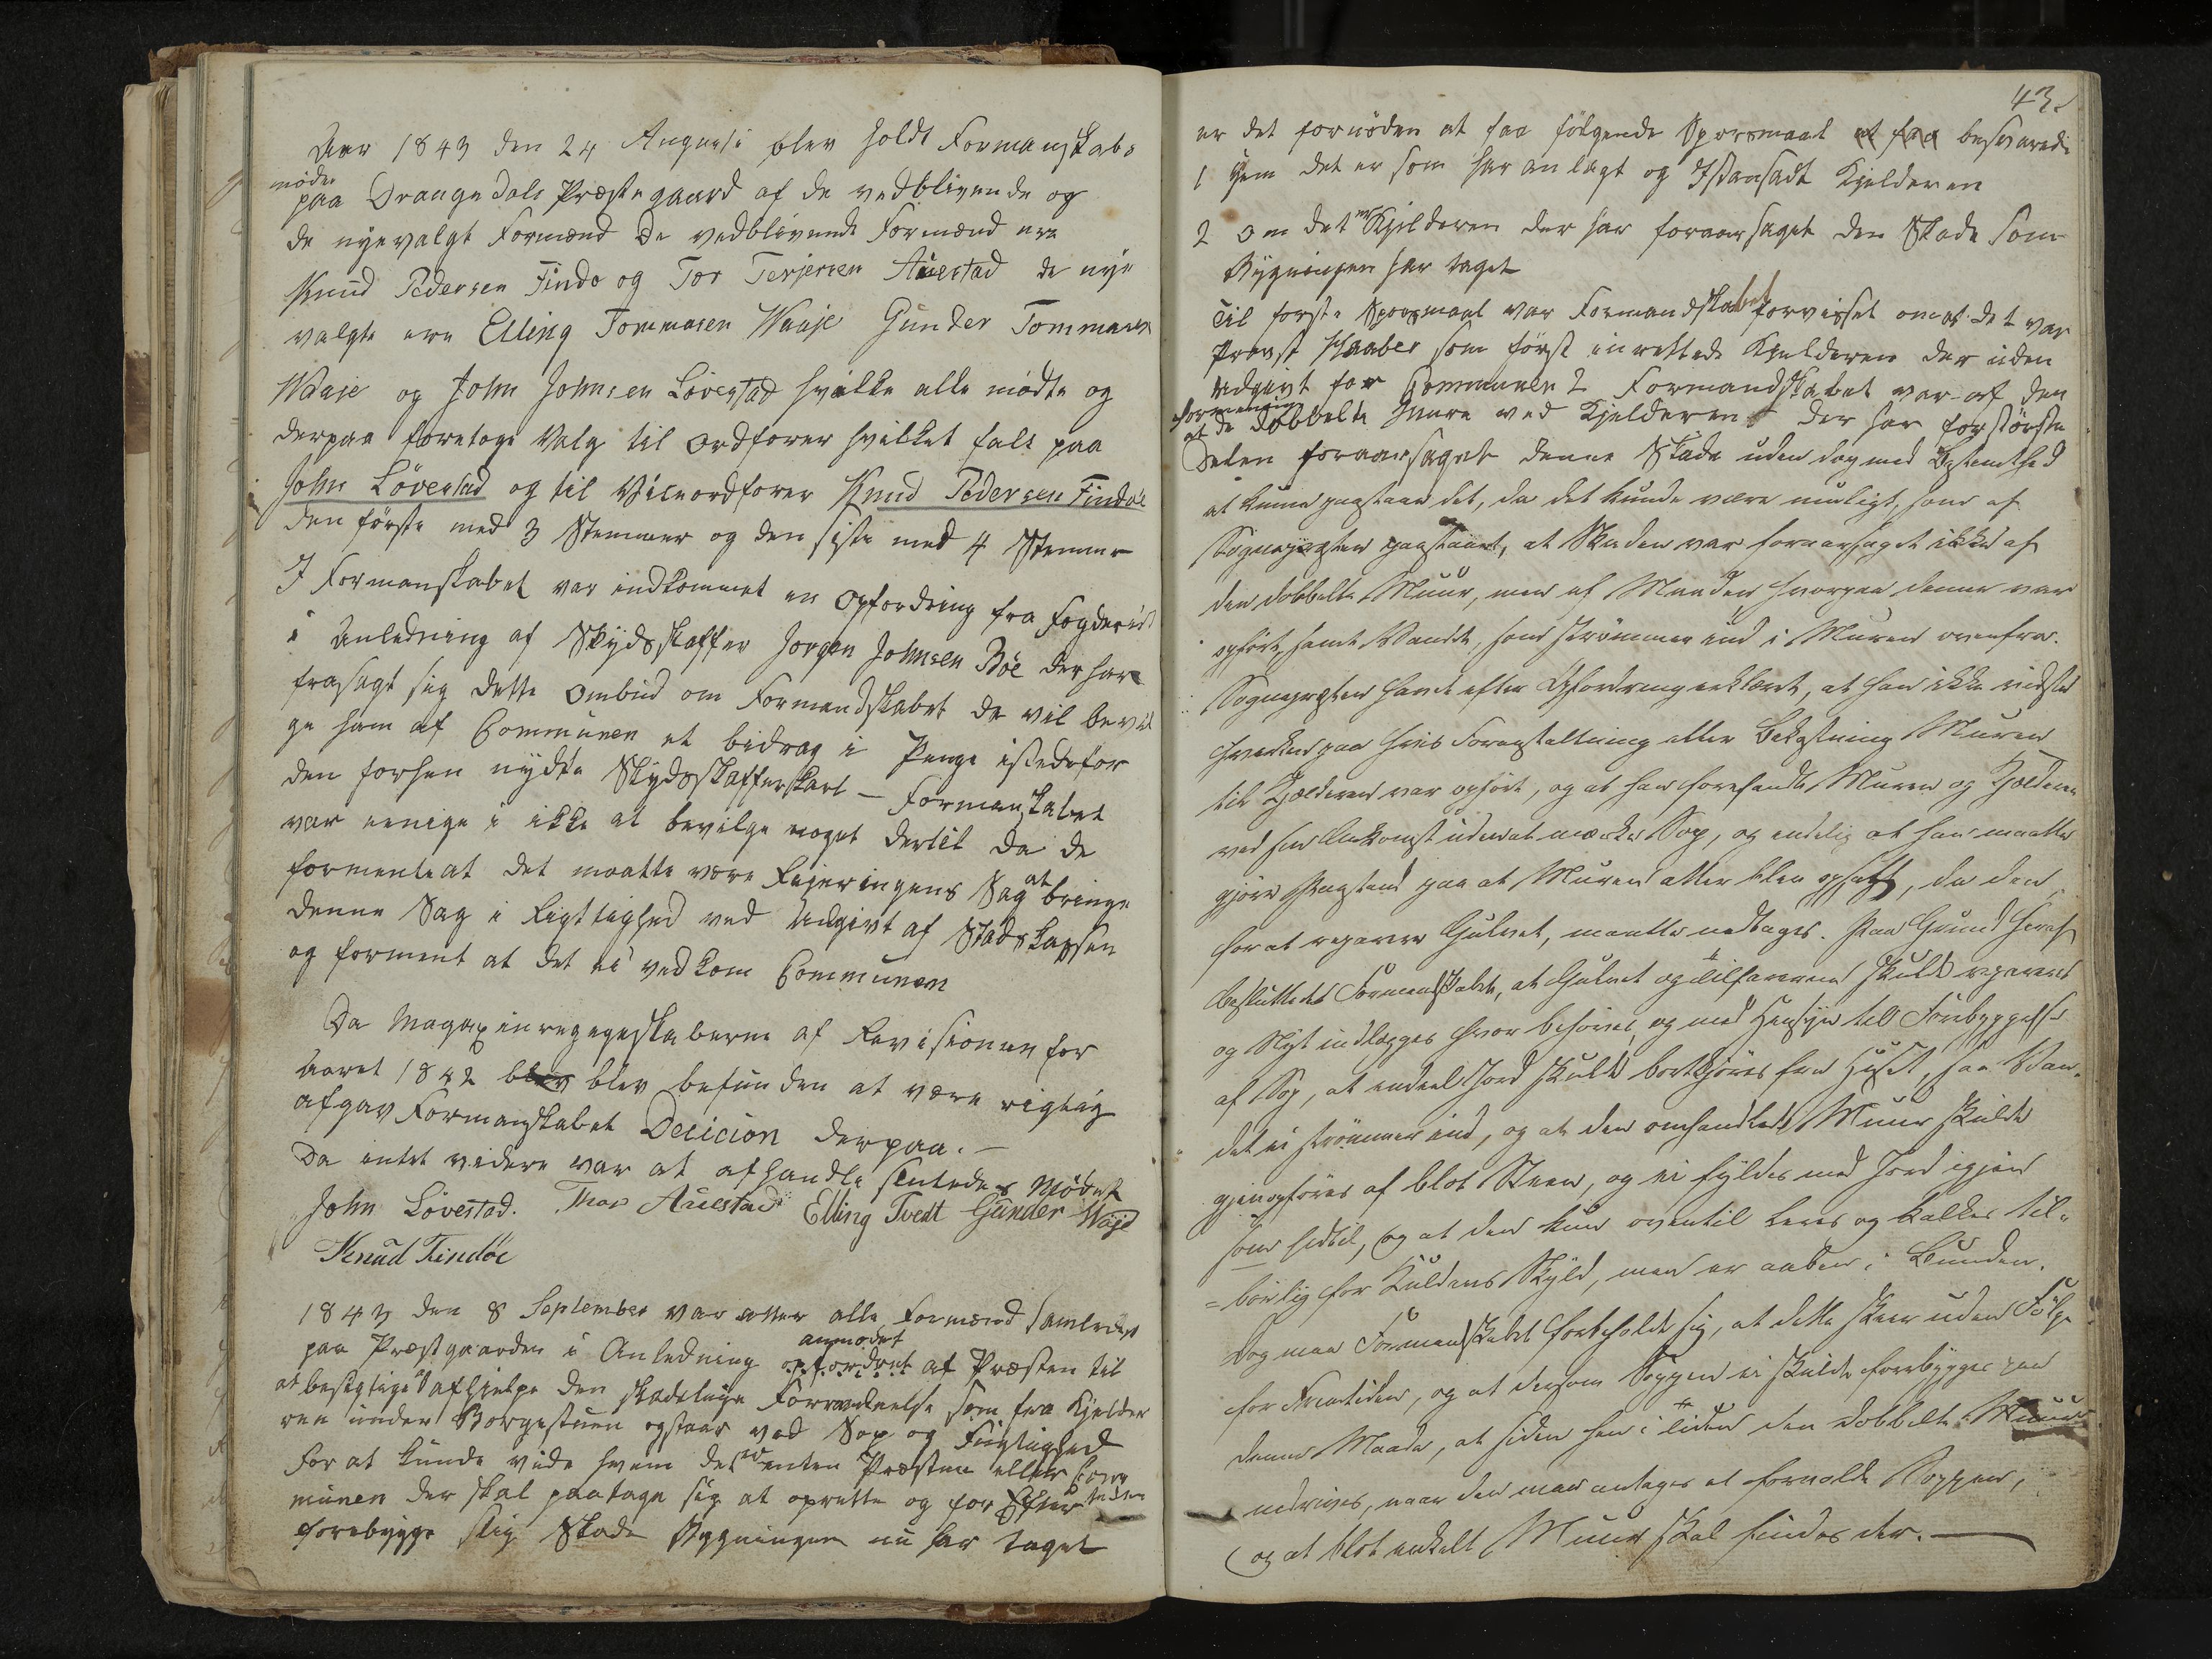 Aar 1843 den 24 August blev holdt Formanskabs
møde
paa Drangedals Præstegaard af de vedblivende og
de nyevalgt Formænd De vedblivende Formænd ere
Knud Pedersen Findø og Tor Terjersen Auestad de nye
valgte ere Elling Tommasen Waaje Gunder Tommasen
Waaje og John Johnsen Lövestad hvilke alle mødte og
derpaa foretoge Valg til Ordfører hvilket falt paa
John Lövestad og til Viceordfører Knud Pedersen Findöe
den første med 3 Stemmer og den siste med 4 Stemmer
I Formanskabet var indkommet en Opfordring fra Fogderiet
i Anledning af Skydsskaffer Jorgen Johnsen Böe der har
frasagt sig dette Ombud om Formandskabet de vil bevil
ge ham af Communen et bidrag i Penge istedefor
den forhen nydte Skydsskafferskat – Formanskabet
var eenige i ikke at bevilge noget dertil da de
formente at det maatte være Rejeringens Sag at bringe
denne Sag i Rigtighed ved Udgivt af Stadskassen
og forment at det ei vedkom Communen
Da Magaxinregegeskaberne af Revisionen for
Aaret 1842 blev blev befunden at være rigtig
afgav Formanskabet Decicion derpaa. –
Da intet videre var at afhandle sluttedes Mødet
John Lövestad. Thor Auestad Elling Tvedt Gunder Wøje
Knud Findöe
1843 den 8 September var atter alle Formænd samlede
paa Præstgaarden i Anledning opfordret af Præsten til
anmodet
at besigtige at afhjelpe den skadelige Forraadnelse som fra Kjelder
ren under Borgestuen opstaar ved Sop og Fugtighed
For at kunde vide hvem det er enten Præsten eller Com
munen der skal paatage sig at oprette og for Efter tiden
forebygge slig Skade Bygningen nu har taget
43
er det fornöden at faa fölgende Sporsmaal at faa besvaret
1 Hvem det er som har anlagt og Istansadt Kjelderen
2 Om det er Kjelderen der har foraarsaget den Skade som
Bygningen har taget
Til forste Sporsmaal var Formandskabet forvisset om at det var
Provst Haaber som först inrettede Kjelderen der uden
Udgivt for Communen 2 Formandskabet var af den
formening
at de dobbelte Mure ved Kjelderen der har forstörste
Delen foraarsaget denne Skade uden dog med Bestemthed
at kunne paastaae det, da det kunde være muligt, som af
Sognepræsten paastaaet, at Skaden var foraarsaget ikke af
den dobbelte Muur, men af Maaden, hvorpaa denne var
opført, samt Vandet, som strømmer ind i Muren ovenfra.
Sognepræsten havde efter Opfordring erklæret, at han ikke vidste
hverken paa hvis Foranstaltning eller Bekostning Muren
til Kjælderen var opført, og at han forefandt Muren og Kjælderen
ved sin Ankomst uden at mærke Sop, og endelig at han maatte
gjøre Paastand paa at Muren atter blev opsatt, da den
for at reparere Gulvet, maatte nedtages. Paa Grund heraf
besluttede Formandskabet, at Gulvet og Tilfarerne skulde repareres
og Nyt indlægges hvor behøves, og med Hensyn til Forebyggelse
af Sop, at endeel Jord skulde bortkjøres fra Huset, saa Van-
det ei strømmer ind, og at den omhandlede Muur skulde
gjenopføres af blot Steen, og ei fyldes med Jord igjen
som hidtil, og at den kun oventil leres og kalkes til-
=børlig for Kuldens Skyld, men er aaben i Bunden.
Dog maa Formandskabet forbeholde sig, at dette skeer uden Følge
for Fremtiden, og at dersom Soppen ei skulde forebygges paa
denne Maade, at siden hen i Tiden den dobbelte Muur
nedrives, naar den maa antages at forvolde Soppen,
og at blot enkelt Muur skal findes der. —